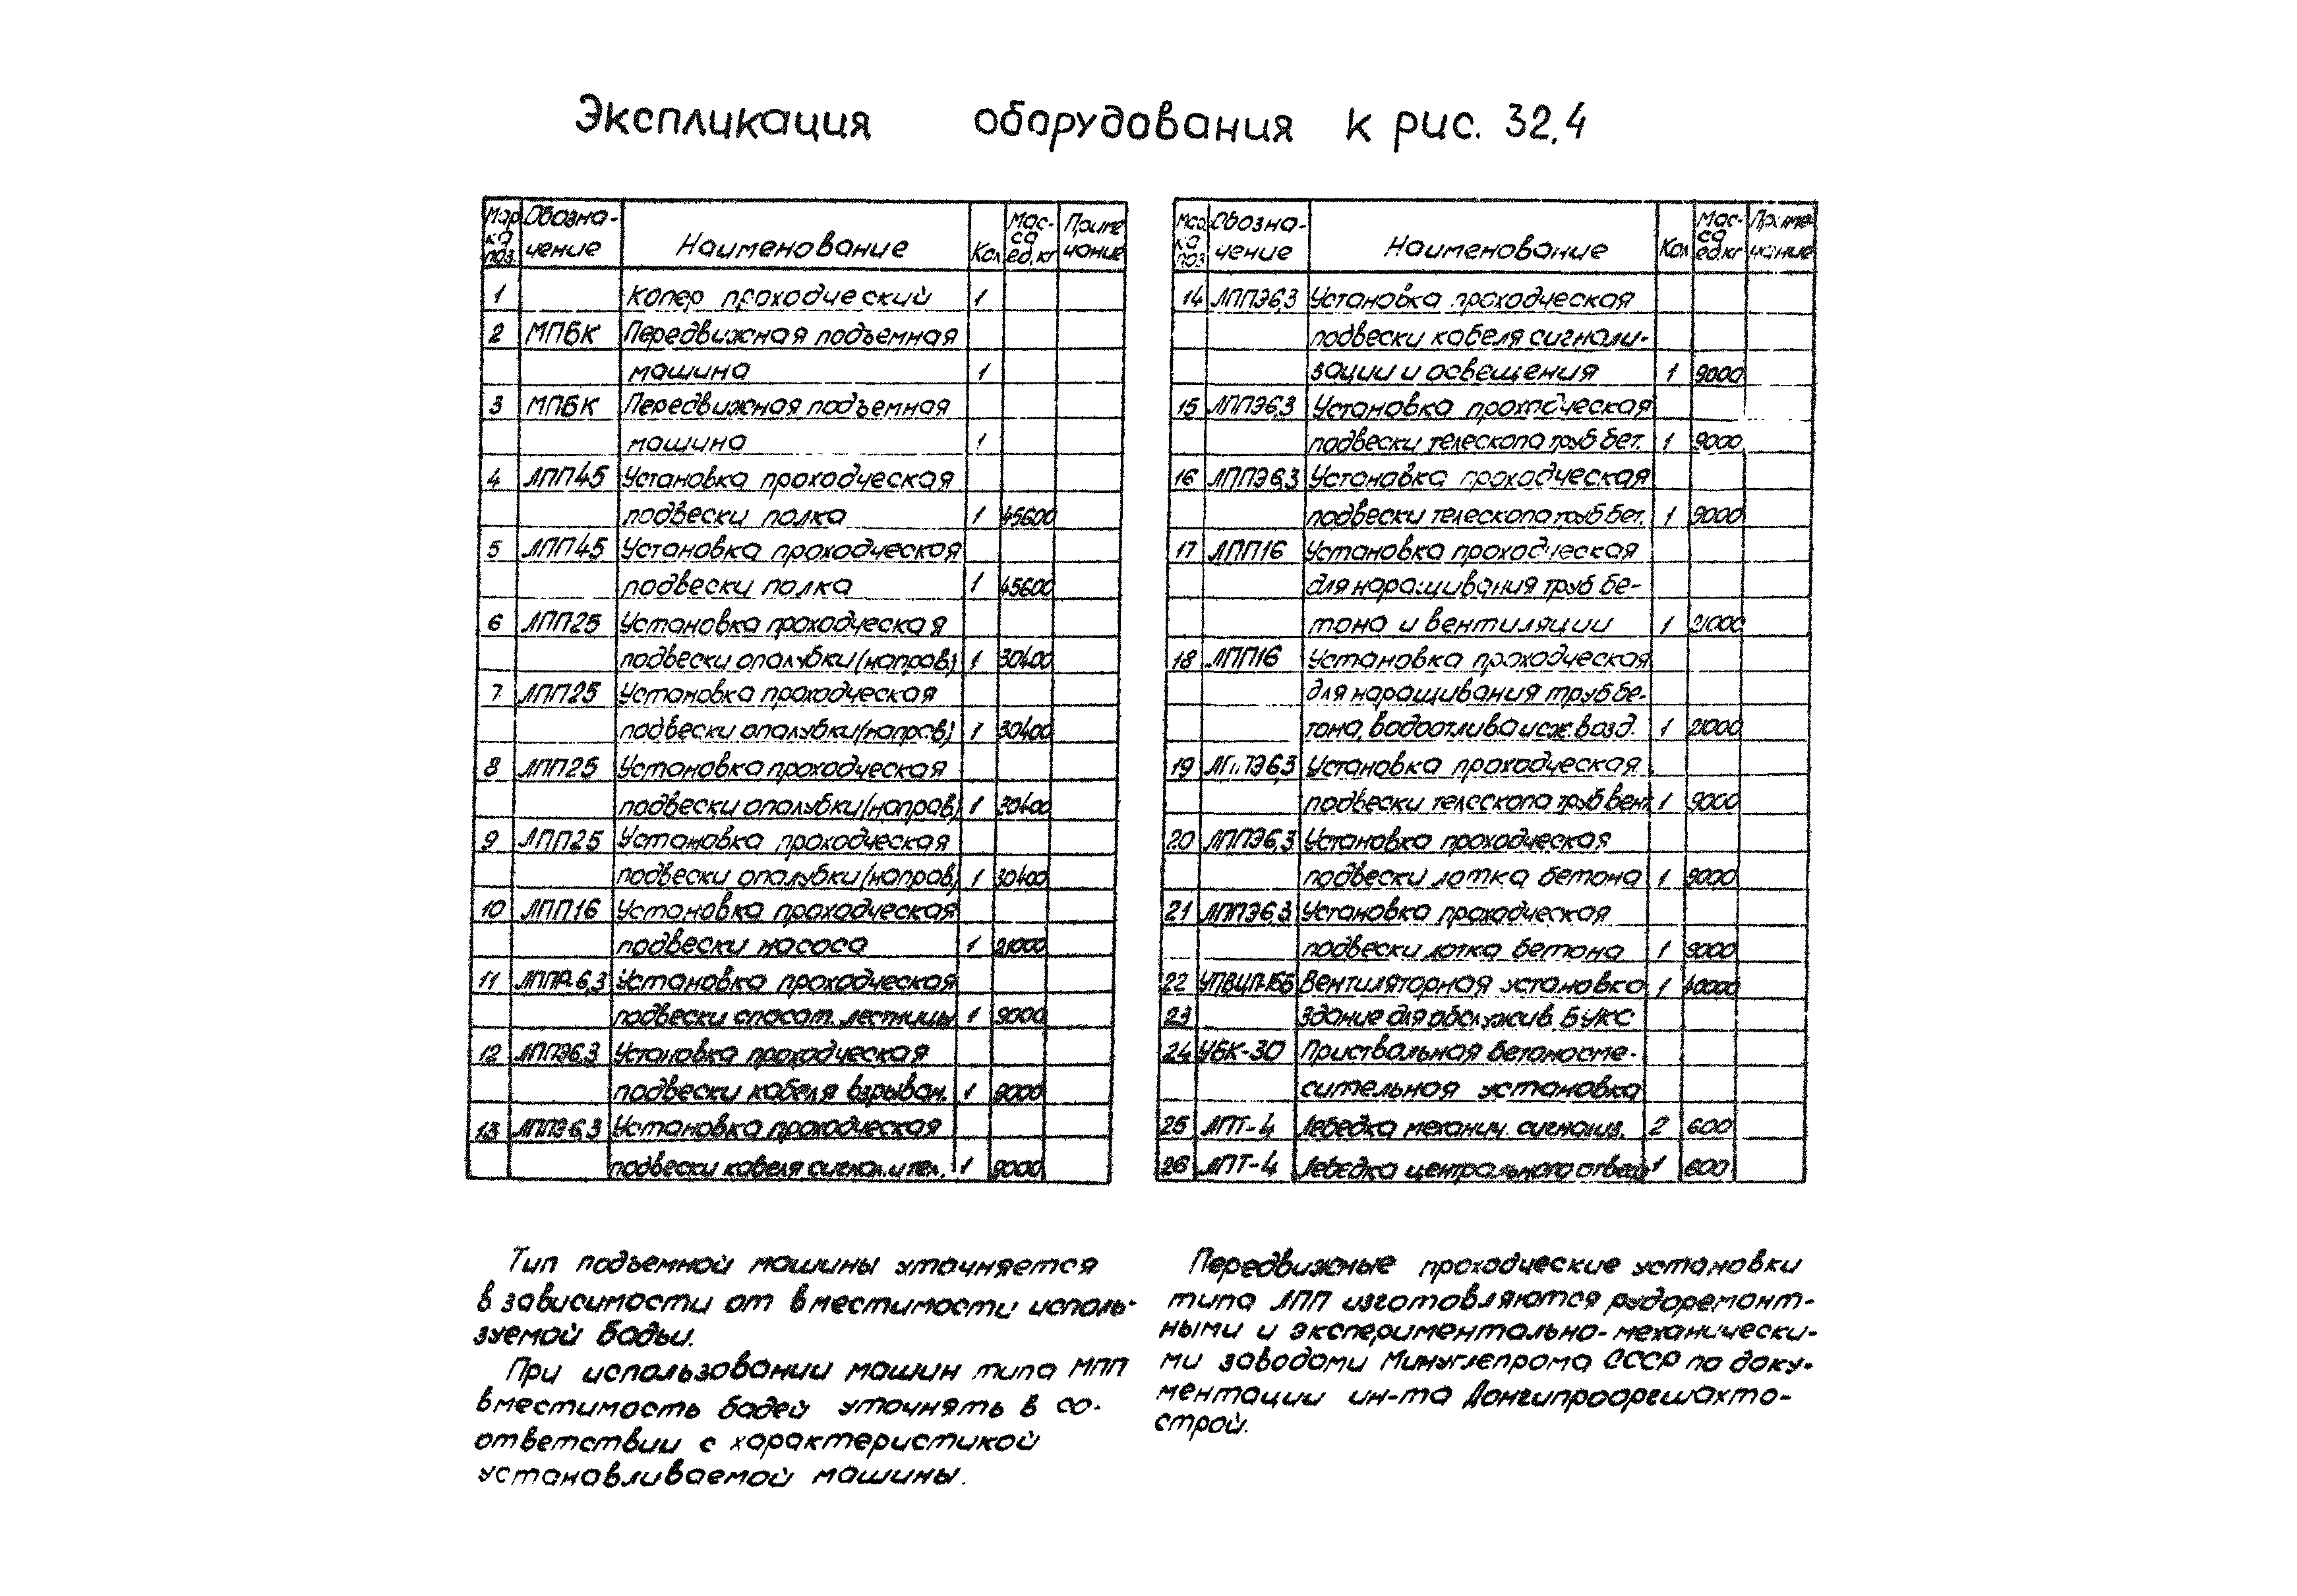 Экспликация оборудования к рис. 32,4
Мар ка поз. Обозна- чение Наименование Кол Мас- са ед.кг Приме чание
1 Копер проходческий 1
2 МПБК Передвижная подъемная
машина 1
3 МПБК Передвижная подъемная
машина 1
4 ЛПП45 Установка проходческая
подвески полка 1 45600
5 ЛПП45 Установка проходческая
подвески полка 1 45600
6 ЛПП25 Установка проходческая
подвески опалубки (направ.) 1 30400
7 ЛПП25 Установка проходческая
подвески опалубки (направ) 1 30400
8 ЛПП25 Установка проходческая
подвески опалубки (направ.) 1 30400
9 ЛПП25 Установка проходческая
подвески опалубки (направ) 1 30400
10 ЛПП16 Установка проходческая
подвески насоса 1 21000
11 6,3 Установка проходческая
подвески спасат. лестницы 1 9000
12 ЛППЭ6,3 Установка проходческая
подвески кабеля взрыван. 1 9000
13 ЛППЭ6,3 Установка проходческая
подвески кабеля сигнал. и тел. 1 9000
Мар ка поз Обозна- чение Наименование Кол Мас- са ед.кг Приме- чание
14 ЛППЭ6,3 Установка проходческая
подвески кабеля сигнали-
зации и освещения 1 9000
15 ЛППЭ6,3 Установка проходческая
подвески телескопа труб бет. 1 9000
16 ЛППЭ6,3 Установка проходческая
подвески телескопа труб бет. 1 9000
17 ЛПП16 Установка проходческая
для наращивания труб бе-
тона и вентиляции 1 21000
18 ЛПП16 Установка проходческая
для наращивания труб бе-
тона, водоотлива и сж. возд. 1 21000
19 ЛППЭ6,3 Установка проходческая
подвески телескопа труб вент. 1 9000
20 ЛППЭ6,3 Установка проходческая
подвески лотка бетона 1 9000
21 ЛППЭ6,3 Установка проходческая
подвески лотка бетона 1 9000
22 УПВЦП-16Б Вентиляторная установка 1 40000
23 Здание для обслужив. БУКС
24 УБК-30 Приствольная бетоносме-
сительная установка
25 ЛПТ-4 Лебедка механич. сигнализ. 2 600
26 ЛПТ-4 Лебедка центрального отвеса 1 600
Тип подъемной машины уточняется
в зависимости от вместимости исполь-
зуемой бадьи.
При использовании машин типа МПП
вместимость бадей уточнять в со-
ответствии с характеристикой
устанавливаемой машины.
Передвижные проходческие установки
типа ЛПП изготовляются рудоремонт-
ными и экспериментально-механически-
ми заводами Минуглепрома СССР по доку-
ментации ин-та Донгипрооргшахто-
строй.